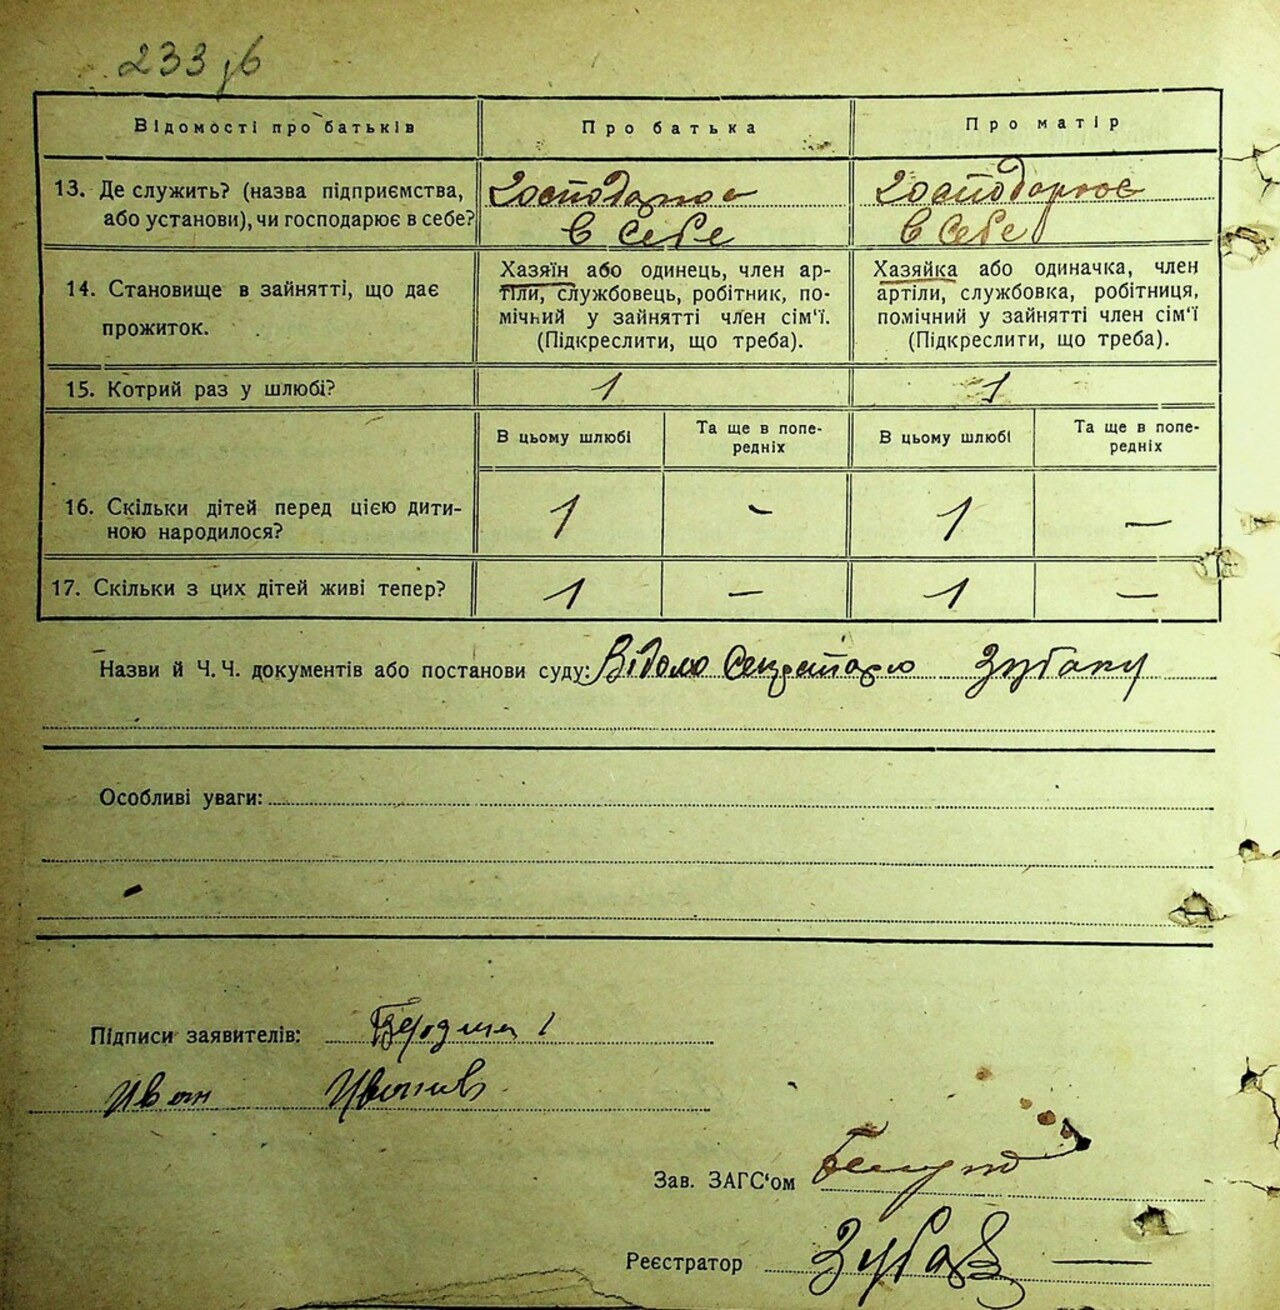 233 зв
Відомості про батьків Про батька Про матір
13. Де служить? (назва підприємства, або установи), чи господарює в себе?
Господарює
в себе
Господарює
в себе
14. Становище в зайнятті, що дає прожиток.
Хазяїн або одинець, член ар-
тіли, службовець, робітник, по-
мічний у зайнятті член сім‘ї.
(Підкреслити, що треба).
Хазяйка або одиначка, член
артіли, службовка, робітниця,
помічний у зайнятті член сім‘ї
(Підкреслити, що треба).
15. Котрий раз у шлюбі? 1 1
В цьому шлюбі Та ще в попе-
редніх В цьому шлюбі Та ще в попе-
редніх
16. Скільки дітей перед цією дити-
ною народилося? 1 - 1 —
17. Скільки з цих дітей живі тепер? 1 — 1 —
Назви й Ч. Ч. документів або постанови суду: Відомо Секретарю Зубаку
Особливі уваги:
Підписи заявителів:
Иван
Зав. ЗАГС‘ом
Реєстратор Зубак